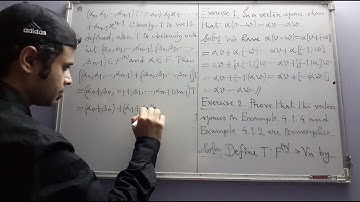 (a₀, a₁, ..., aₙ₋₁)T = a₀ + a₁x + ...
+ aₙ₋₁xⁿ⁻¹. Clearly, T is well
defined, also, T is obviously onto
Let (a₀, a₁, ..., aₙ₋₁), (b₀, b₁, ...,
bₙ₋₁) ∈ F⁽ⁿ⁾ and α ∈ F. Then
[(a₀, a₁, ..., aₙ₋₁) + (b₀, b₁, ..., bₙ₋₁)]T
= (a₀+b₀, a₁+b₁, ..., aₙ₋₁+bₙ₋₁)T
= (a₀+b₀) + (a₁+
adidas
Exercise 1. In a vector space show
that α(v-w) = αv - αw.
Soln. We have α(v-w) = α[v+(-w)]
= αv + α(-w) = αv + α[(-1)w]
= αv + (-1)(αw)
= αv - αw.
Exercise 2. Prove that the vector
spaces in Example 4.1.4 and
Example 4.1.2 are isomorphic.
Soln. Define T: F⁽ⁿ⁾ → Vₙ by